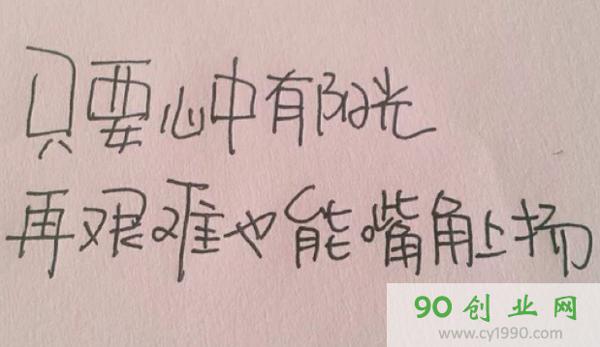 只要心中有阳光
再艰难也能嘴角上扬
90创业网
www.cy1990.com